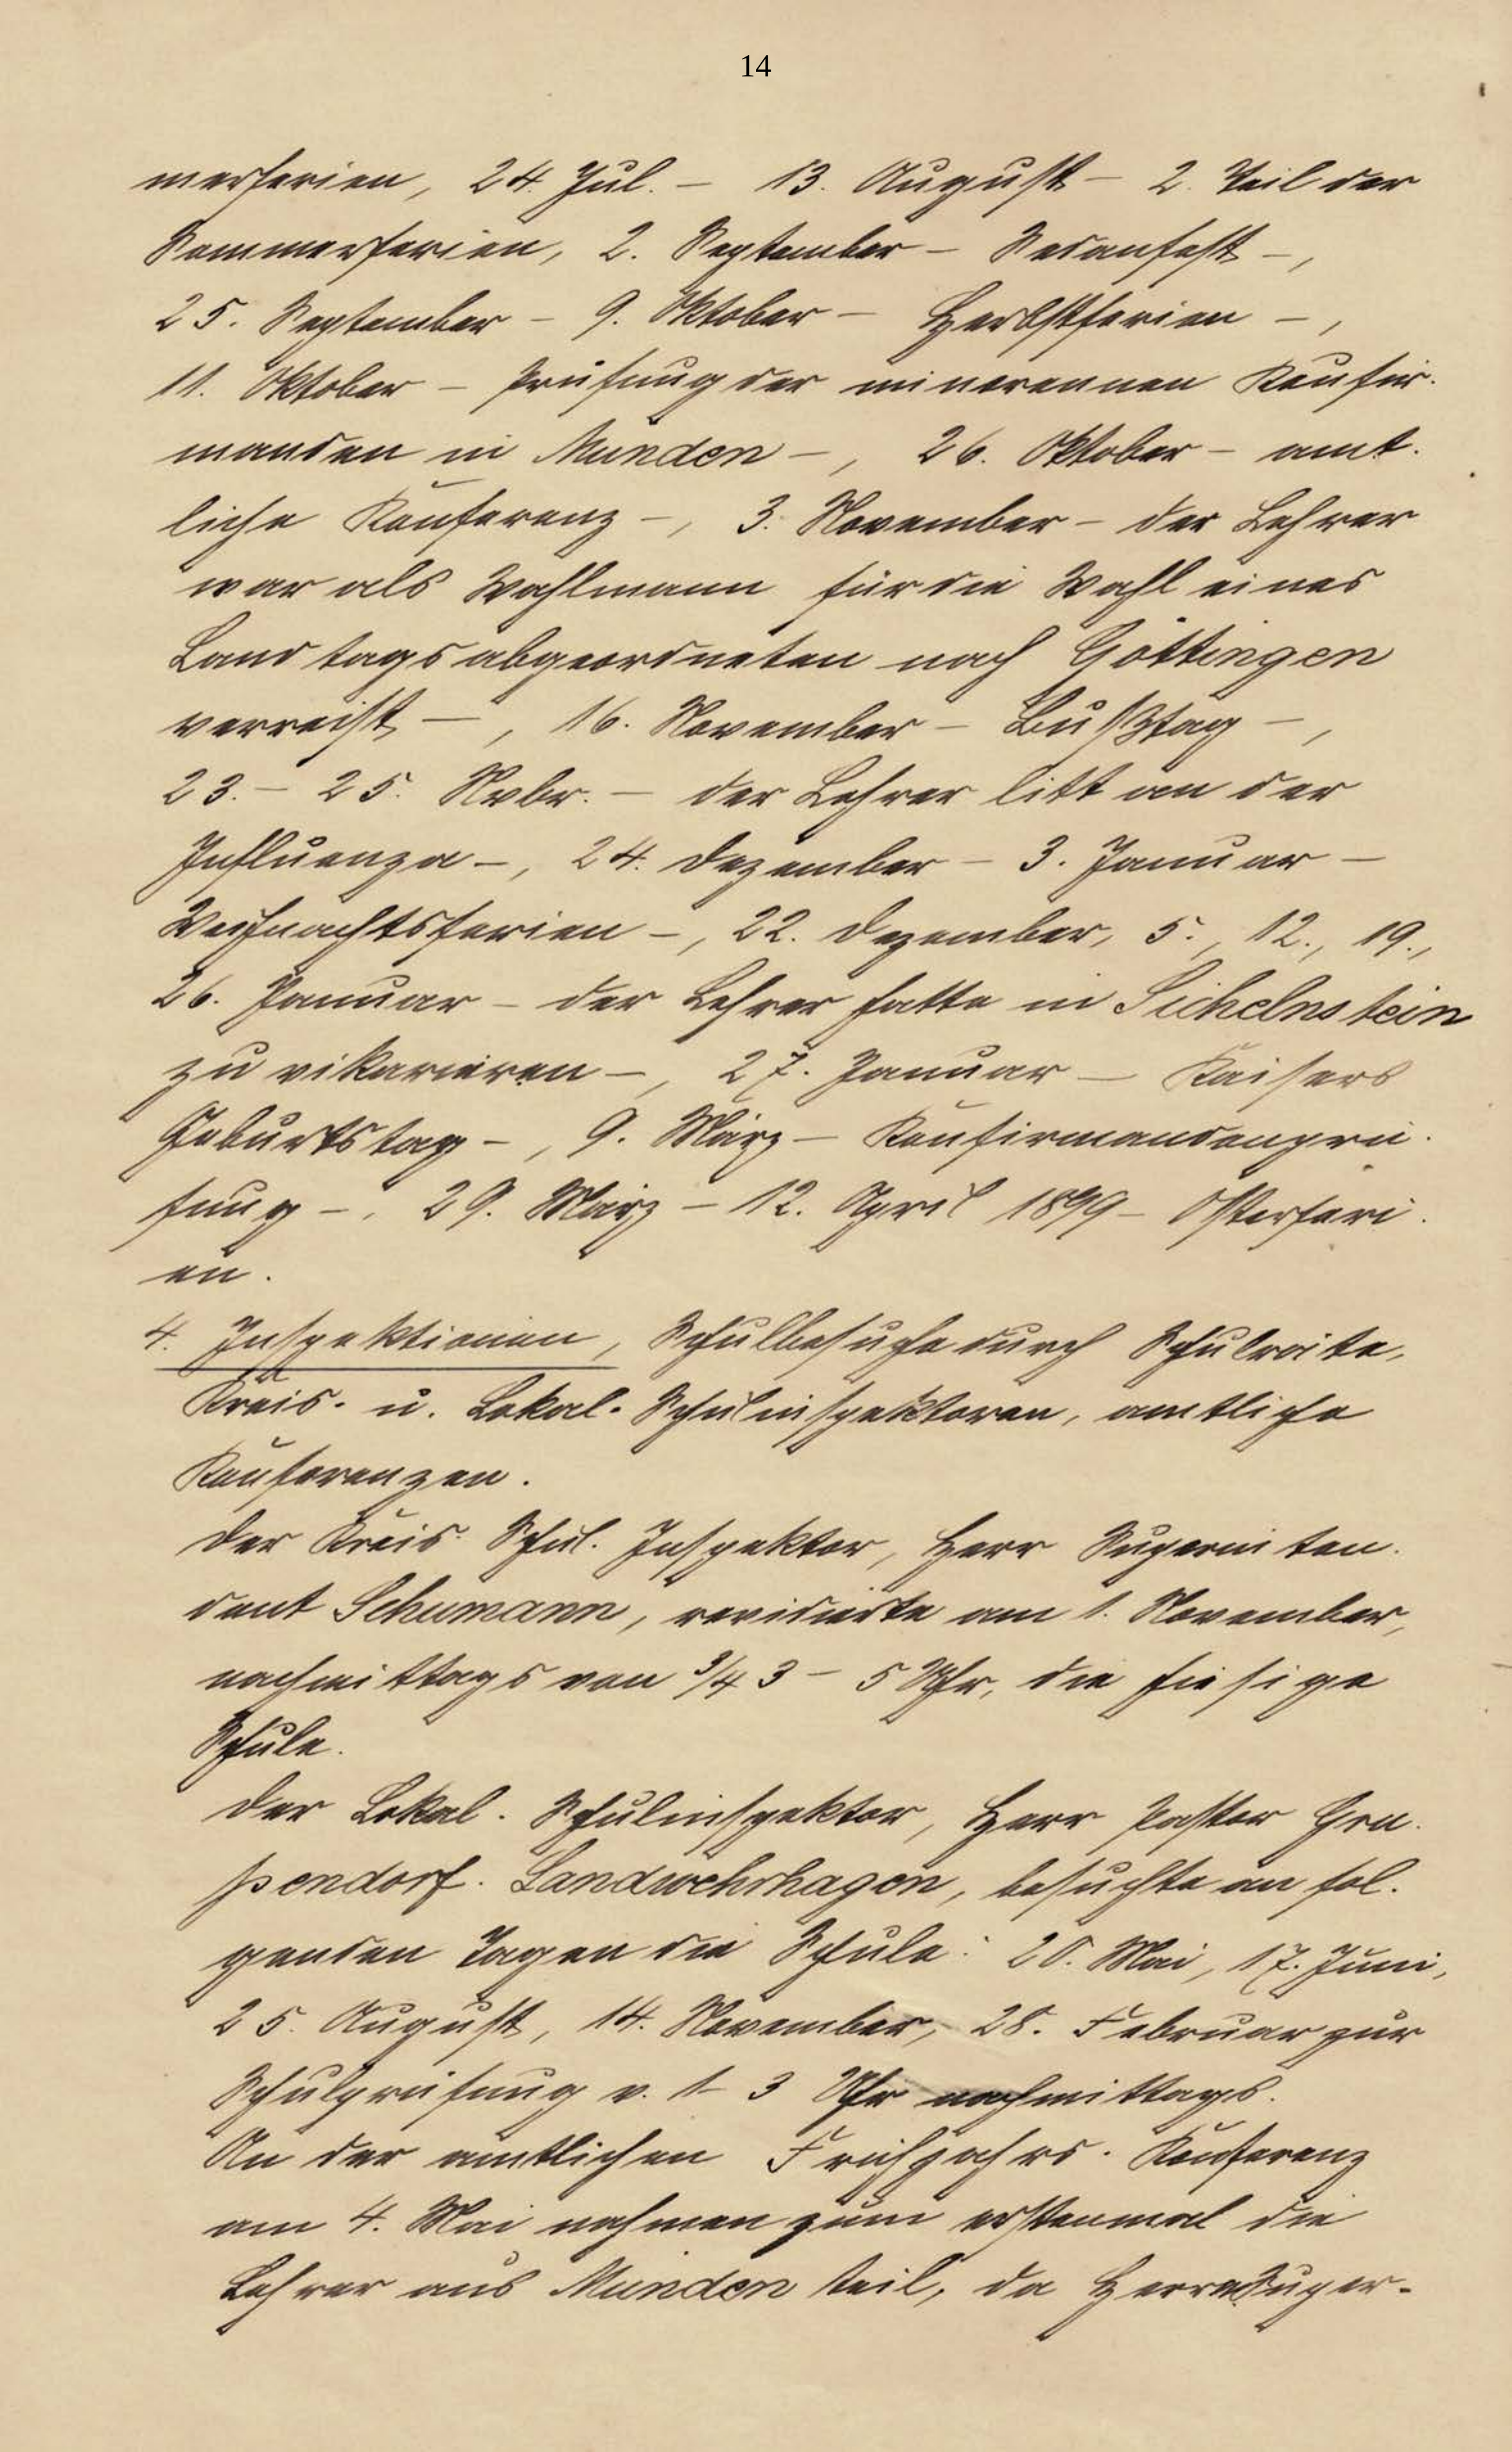 14
merferien, 24. Jul. – 13. August – 2. Teil der
Sommerferien, 2. September – Sedanfest –,
25. September – 9. Oktober – Herbstferien –,
11. Oktober – Prüfung der minorennen Konfir-
manden in Münden –, 26. Oktober – amt-
liche Konferenz –, 3. November – der Lehrer
war als Wahlmann für die Wahl eines
Landtagsabgeordneten nach Göttingen
verreist –, 16. November – Bußtag –,
23. – 25. Nvbr. – der Lehrer litt an der
Influenza –, 24. Dezember – 3. Januar –
Weihnachtsferien –, 22. Dezember, 5., 12., 19.,
26. Januar – der Lehrer hatte in Sichelnstein
zu vikarieren –, 27. Januar – Kaisers
Geburtstag –, 9. März – Konfirmandenprü-
fung –, 29. März – 12. April 1899 – Osterferi-
en.
4. Inspektionen, Schulbesuche durch Schulräte,
Kreis- u. Lokal-Schulinspektoren, amtliche
Konferenzen.
Der Kreis-Schul-Inspektor, Herr Superinten-
dent Schumann, revidierte am 1. November,
nachmittags von 3/4 3 – 5 Uhr, die hiesige
Schule.
Der Lokal-Schulinspektor, Herr Pastor Gru-
pendorf-Landwehrhagen, besuchte an fol-
genden Tagen die Schule: 20. Mai, 17. Juni,
25. August, 14. November, 28. Februar zur
Schulprüfung v. 1 – 3 Uhr nachmittags.
An der amtlichen Frühjahrs-Konferenz
am 4. Mai nahmen zum erstenmal die
Lehrer aus Münden teil, da Herr Super-